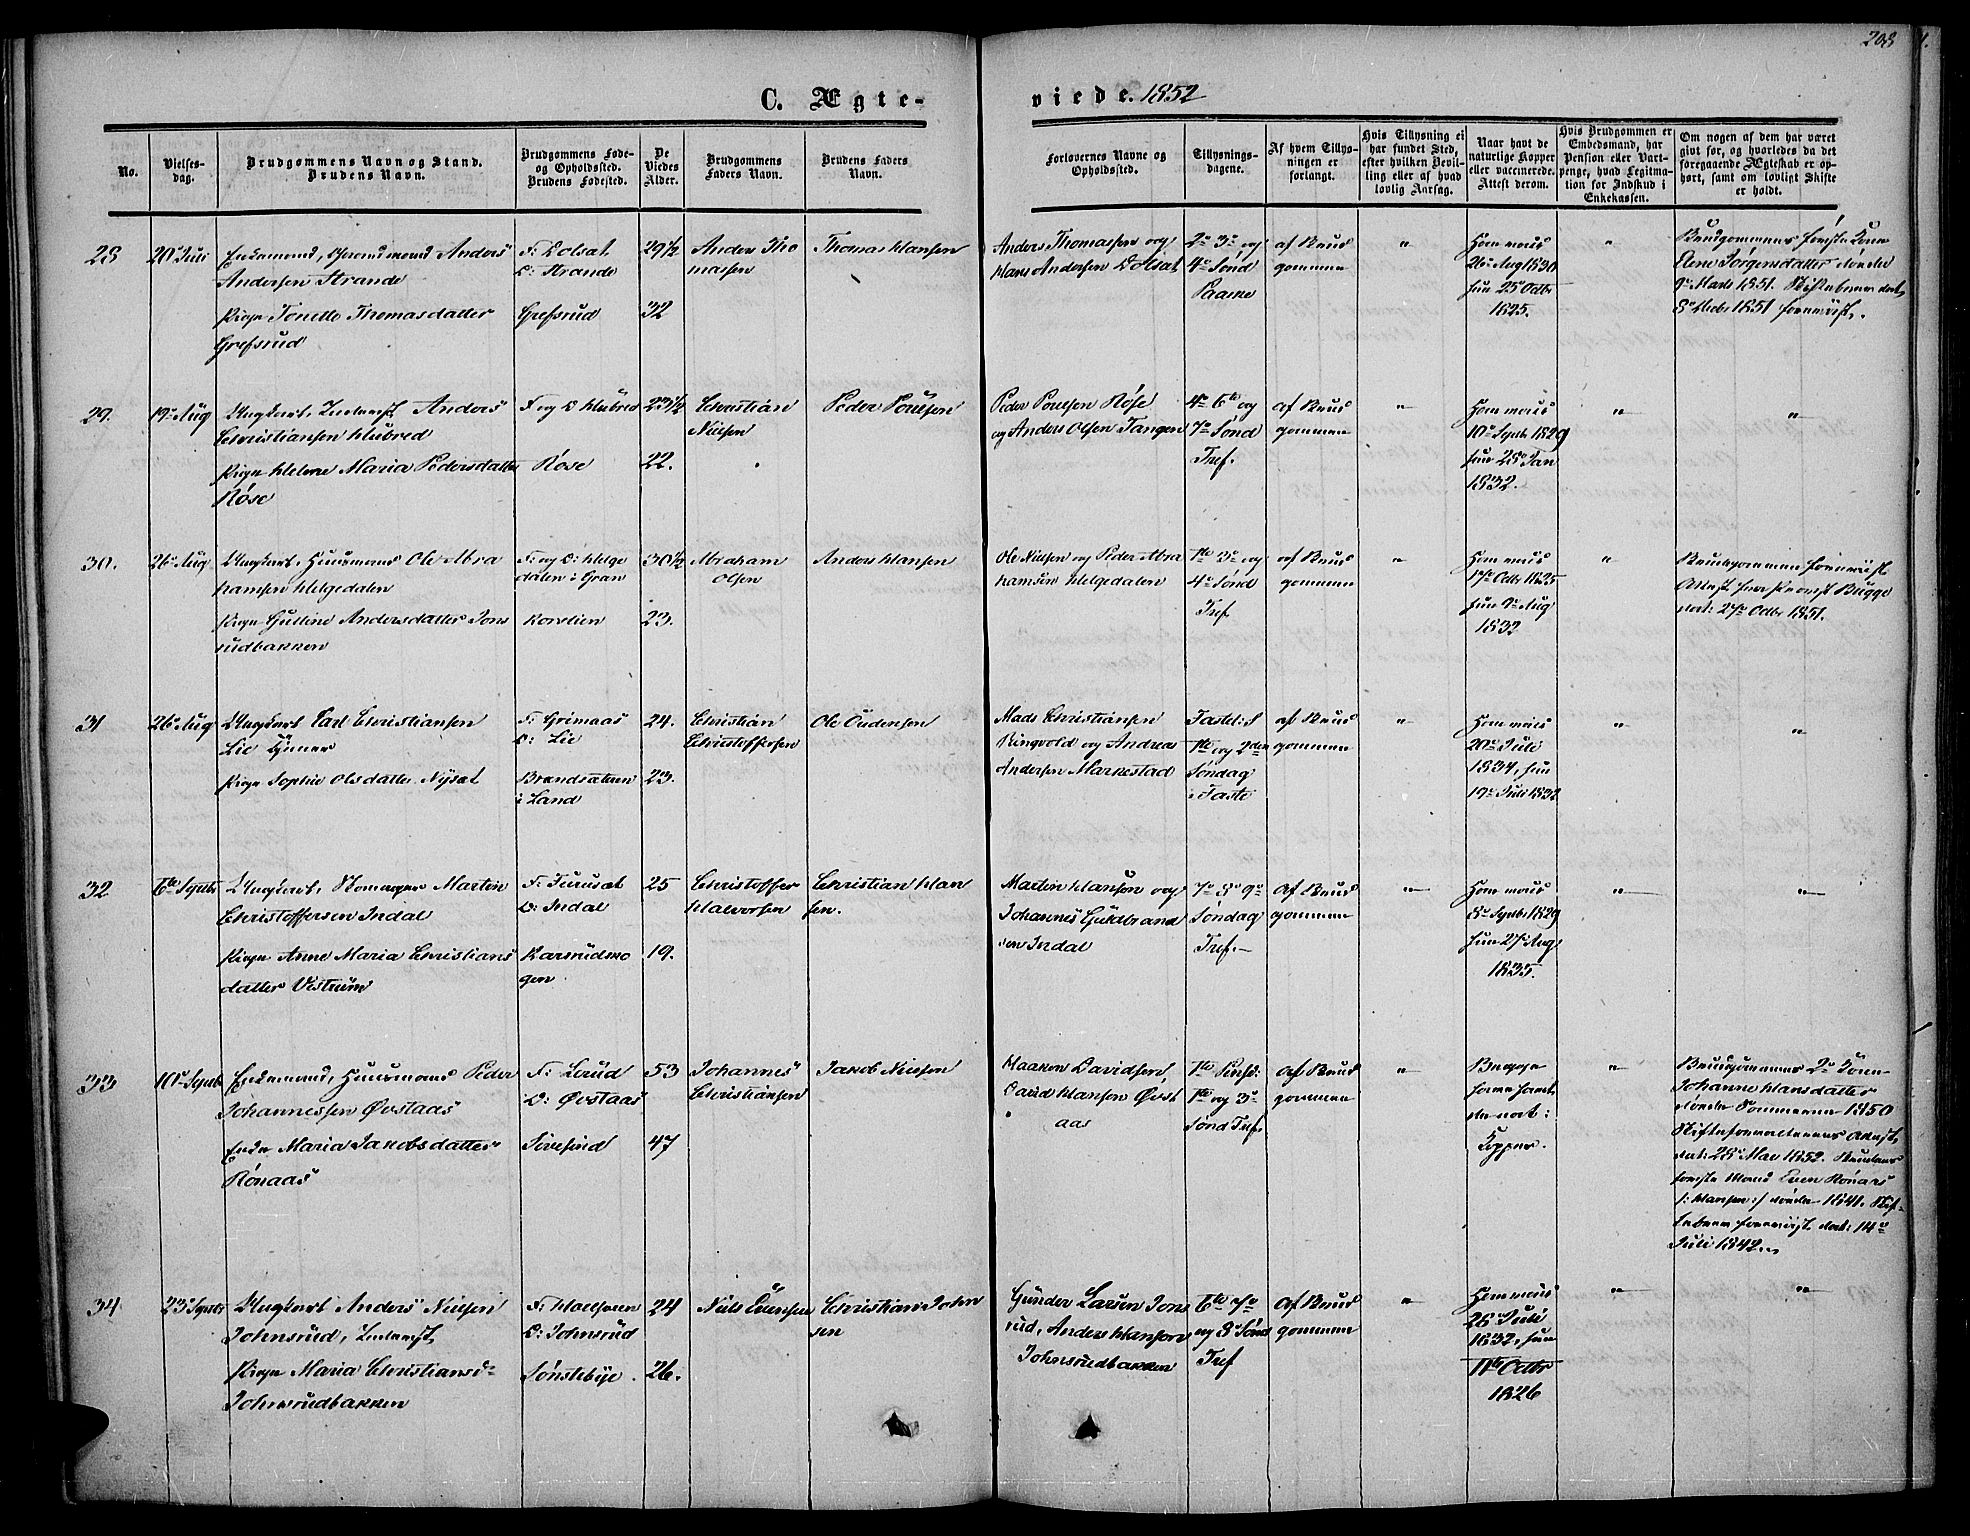 208
C. Ægte-
viede. 1852
No.
Vielses-
dag.
Brudgommens Navn og Stand.
Brudens Navn.
Brudgommens Føde-
og Opholdssted.
Brudens Fødested.
De
Viedes
Alder.
Brudgommens
Faders Navn.
Brudens Faders
Navn.
Forlovernes Navne og
Opholdssted.
Tillysnings-
dagene.
Af hvem Tillys-
ningen er
forlangt.
Hvis Tillysning ei
har fundet Sted,
efter hvilken Bevil-
ling eller af hvad
lovlig Aarsag.
Naar havt de
naturlige Kopper
eller vaccinerede.
Attest derom.
Hvis Brudgommen er
Embedsmand, har
Pension eller Vart-
penge, hvad Legitima-
tion for Indskud i
Enkekassen.
Om nogen af dem har været
givt før, og hvorledes da det
foregaaende Ægteskab er op-
hørt, samt om lovligt Skifte
er holdt.
28
20 Juli
Enkemand, Anders
Andersen Strande
Pige Tonette Thomasdatter
Grefsrud
F: Dolsat
O: Strande
Grefsrud
29 1/2
32
Anders Tho
massen
Thomas Hansen
Anders Thomassen og
Hans Andersen Dolsat
2den 3die og
4de Sønd
Paaske
af Brud
gommen
"
Ham
26 Aug 1830
hun 25 Octbr
1825.
"
Brudgommens første Kone
Jørgensdatter døde
9 Marts 1851.
8 1851 forevist.
29.
19 Aug
Ungkarl, Anders
Christiansen Hubred
Pige Helene Maria Pedersdatter
Røse
F og O Hubred
Røse
23 1/2
22.
Christian
Nielsen
Peder Poulsen
Peder Poulsen Røse
og Anders Olsen Tangen
4de 6te og
7de Sønd
Tref.
af Brud
gommen
"
10 Septbr 1829
hun 28 Jan
1832.
"
"
30.
26 Aug
Ungkarl, Huusmand Ole Abra
hamsen Helgedalen
Pige Gulline Andersdatter Jons
rudbakken
F: og O: Helge
dalen i Gran
Korslien
30 1/2
23.
Abraham
Olsen
Anders Hansen
Ole Nielsen og Peder Abra
hamsen Helgedalen
1ste 3die og
4de Sønd
Tref
af Brud
gommen
"
17 Octbr 1825
hun 9 Aug
1832
"
Brudgommen forevist
Attest fra Provst Bugge
dat: 27 Octbr 1851.
31
26 Aug
Ungkarl Carl Christiansen
Lie
Pige Sophie Olsdatter Nysat
F: Grimaas
O: Lie
Brandsætren
i Land
24.
23.
Christian
Christoffersen
Ole Oudensen
Mads Christiansen
Ringvold og Andreas
Andersen Markestad
1ste og 2den
Søndag
i Faste
af Brud
gommen
"
20 Juli
1834, hun
19 Juli 1832
"
"
32
6te Septbr
Ungkarl, Martin
Christoffersen Indal
Pige Anne Maria Christians
datter Vestrum
F: Furusat
O: Indal
Karsrudmo
gen
25
19.
Christoffer
Halvorsen
Christian Han
sen.
Martin Hansen og
Johannes Guldbrand
sen Indal
7de 8de 9de
Søndag
Tref.
af Brud
gommen
"
8 Septbr 1829
hun 27 Aug
1835.
"
"
33
10 Septbr
Enkemand, Huusmand Peder
Johannessen Øvstaas
Enke Maria Jacobsdatter
Rønaas
F: Lerud
O: Øvstaas
53
47
Johannes
Christiansen
Jakob Nielsen
Haakon Davidsen
David Hansen Øvst
aas
1ste Pinse:
1ste og 3die
Sønd Tref.
af Brud
gommen
"
Begge
Kopper.
"
Brudgommens 2den Kone
Johanne Hansdatter
døde Sommeren 1850
dat: 28 Mai 1852. Brudens
første Mand Even Rønaas
/: Hansen :/ døde 1841.
forevist dat: 14de
Juli 1842.
34
23 Septbr
Ungkarl Anders Nielsen
Johnsrud,
Pige Maria Christiansd:
Johnsrudbakken
O: Johnsrud
Sønstebye
24
26.
Niels Evensen
Christian John
sen
Gunder Larsen Jons
rud, Anders Hansen
Johnsrudbakken
6te 7de
og 8de Sønd
Tref
af Brud
gommen
"
26 Juli
1832, hun
11te Octbr
1826
"
"